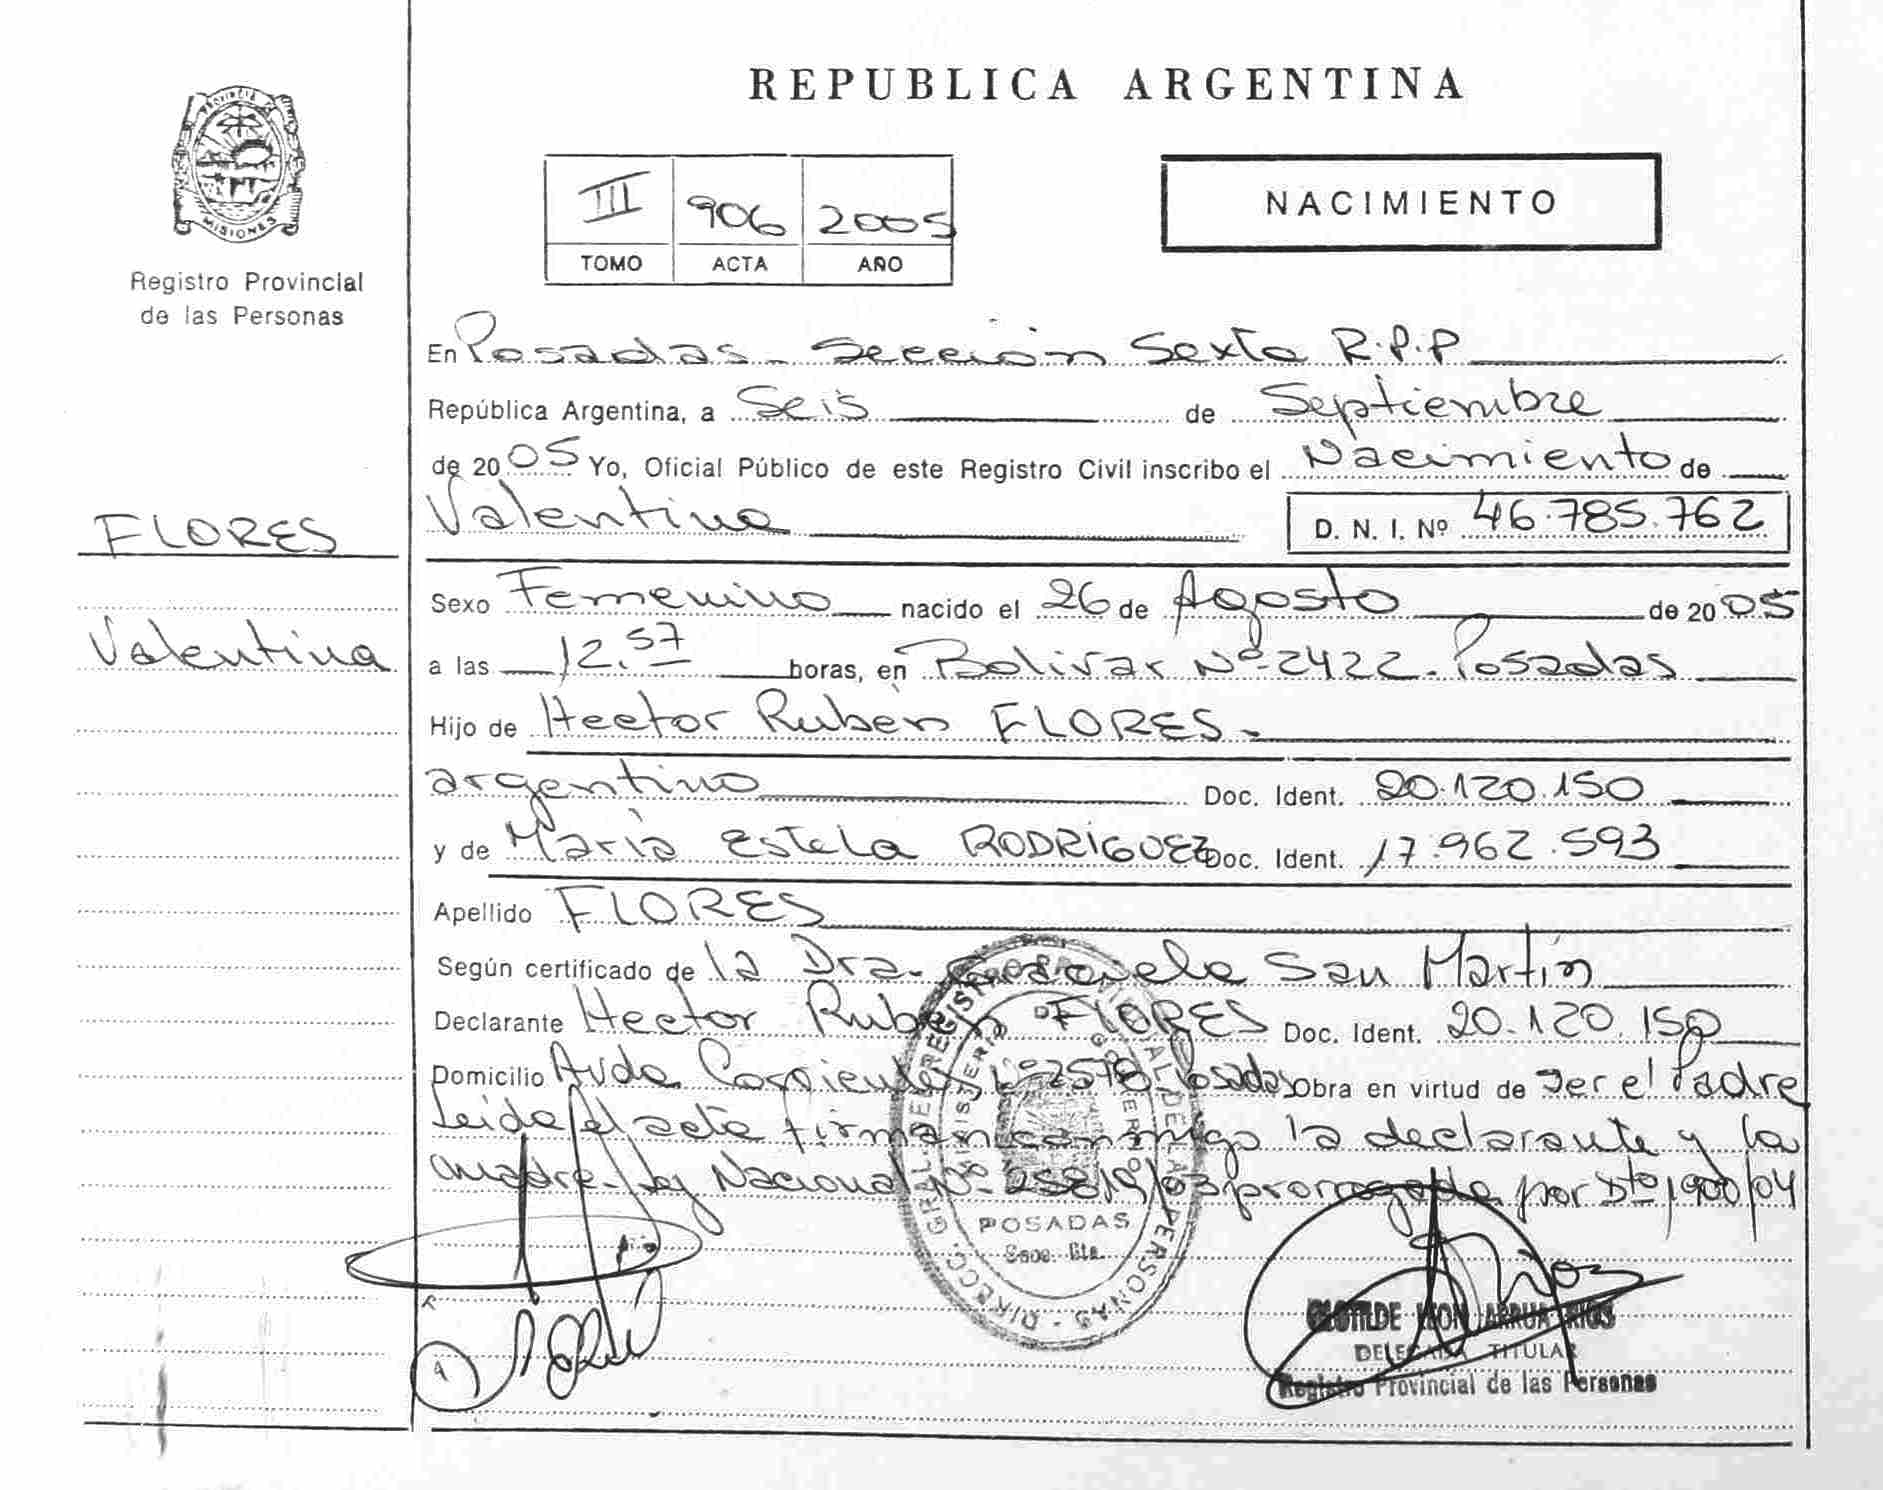 REPUBLICA ARGENTINA
PROVINCIA
MISIONES
Registro Provincial
de las Personas
III 906 2005
TOMO ACTA AÑO
NACIMIENTO
En Posadas - Sección Sexta R.P.P
República Argentina, a Seis de Septiembre
de 2005 Yo, Oficial Público de este Registro Civil inscribo el Nacimiento de
FLORES
Valentina
Valentina D. N. I. Nº 46.785.762
Sexo Femenino nacido el 26 de Agosto de 2005
a las 12.57 horas, en Bolivar Nº 2422 - Posadas
Hijo de Hector Rubén FLORES -
argentino Doc. Ident. 20.120.150
y de María Estela RODRIGUEZ Doc. Ident. 17.962.593
Apellido FLORES
Según certificado de la Dra. San Martín
Declarante Hector Rubén FLORES Doc. Ident. 20.120.150
Domicilio Avda Corrientes Nº 2578 Posadas Obra en virtud de ser el Padre
Leida el acta firman conmigo la declarante y la
madre - Ley Nacional Nº 25819/03 prorrogada por Dto 1900/04
DIRECC. GRAL. DEL REGISTRO PROVINCIAL DE LAS PERSONAS
MINISTERIO DE GOBIERNO
POSADAS
Secc. 6ta.
CLOTILDE LEON ARRUA RIOS
DELEGADA TITULAR
Registro Provincial de las Personas